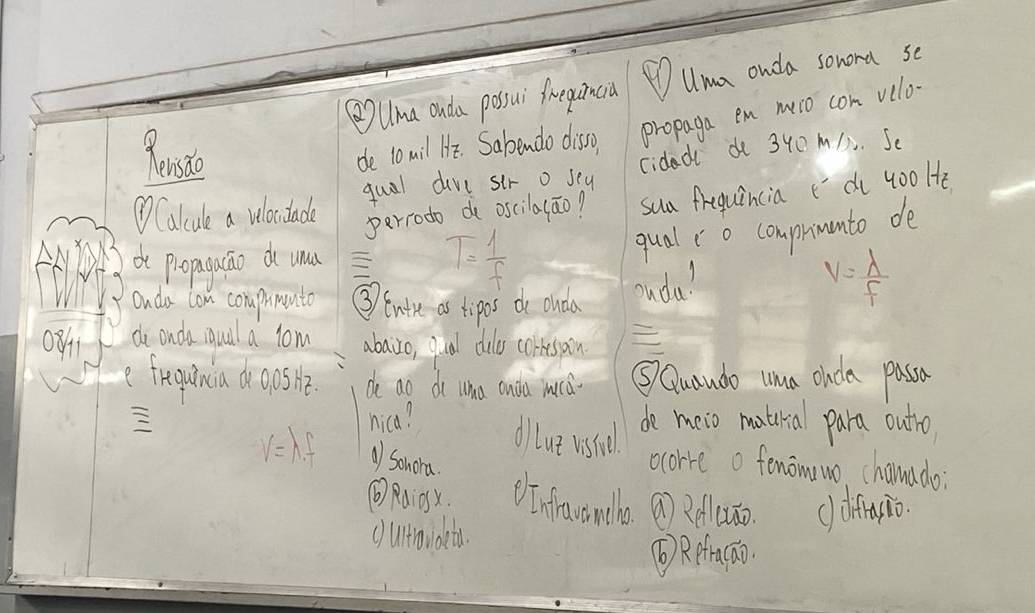 Revisão
① Calcule a velocidade
de propagação de uma
onda com comprimento
de onda igual a 10m
e frequência de 0,05 Hz.
V = λ.f
08/11
② Uma onda possui frequência
de 10 mil Hz. Sabendo disso,
qual deve ser o seu
período de oscilação?
T = 1/f
③ Entre os tipos de onda
abaixo, qual deles correspon-
de ao de uma onda mecâ-
nica?
a) Sonora.
b) Raios x.
c) Ultravioleta.
d) Luz visível.
e) Infravermelho.
④ Uma onda sonora se
propaga em meio com velo-
cidade de 340 m/s. Se
sua frequência é de 400 Hz,
qual é o comprimento de
onda?
V = λ/f
⑤ Quando uma onda passa
de meio material para outro,
ocorre o fenômeno chamado:
a) Reflexão.
b) Refração.
c) difração.